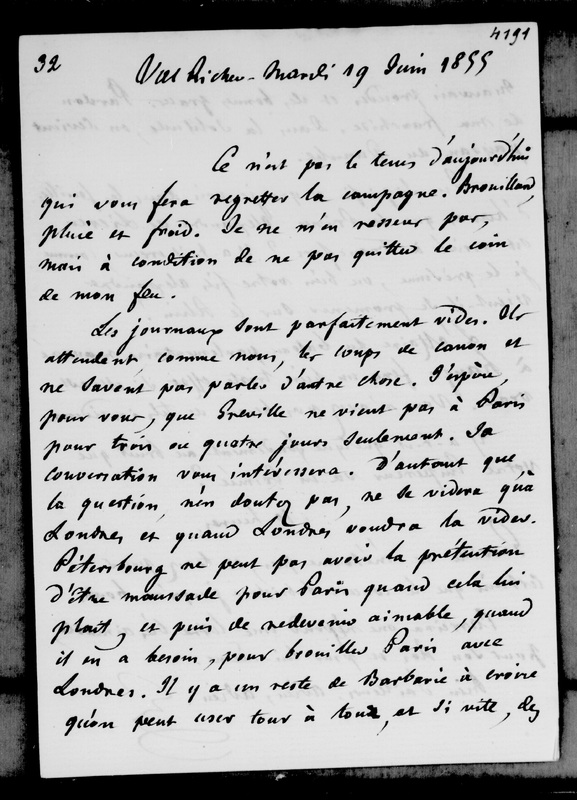 32
4191
Val Richer - Mardi 19 Juin 1855
Ce n'est pas le tems d'aujourd'hui
qui vous fera regretter la campagne. Brouillard,
pluie et froid. Je ne m'en
mais à condition de ne pas quitter le coin
de mon feu.
Les journaux sont parfaitement vides. Ils
attendent comme nous, les coups de canon et
ne savent pas parler d'autre chose. J'espère,
pour vous, que Greville ne vient pas à Paris
pour trois ou quatre jours seulement. Sa
conversation vous intéressera. D'autant que
la question, n'en doutez pas, ne se videra qu'à
Londres et quand Londres voudra la vider.
Pétersbourg ne peut pas avoir la prétention
d'être maussade pour Paris quand cela lui
plait, et puis de redevenir aimable, quand
il en a besoin, pour brouiller Paris avec
Londres. Il y a un reste de Barbarie à croire
qu'on peut user tour à tour, et si vite, des